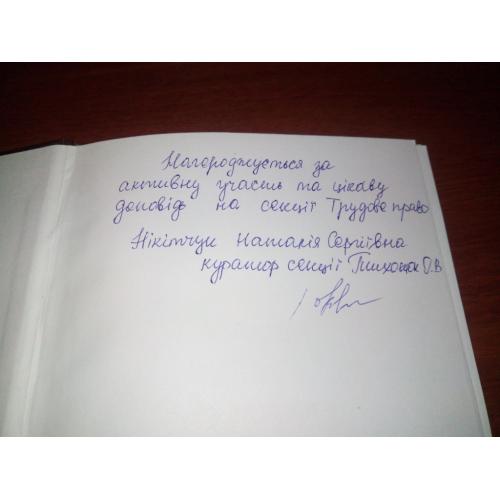 Нагороджується за
активну участь та цікаву
доповідь на секції Трудове право
Нікітчук Наталія Сергіївна
куратор секції О.В